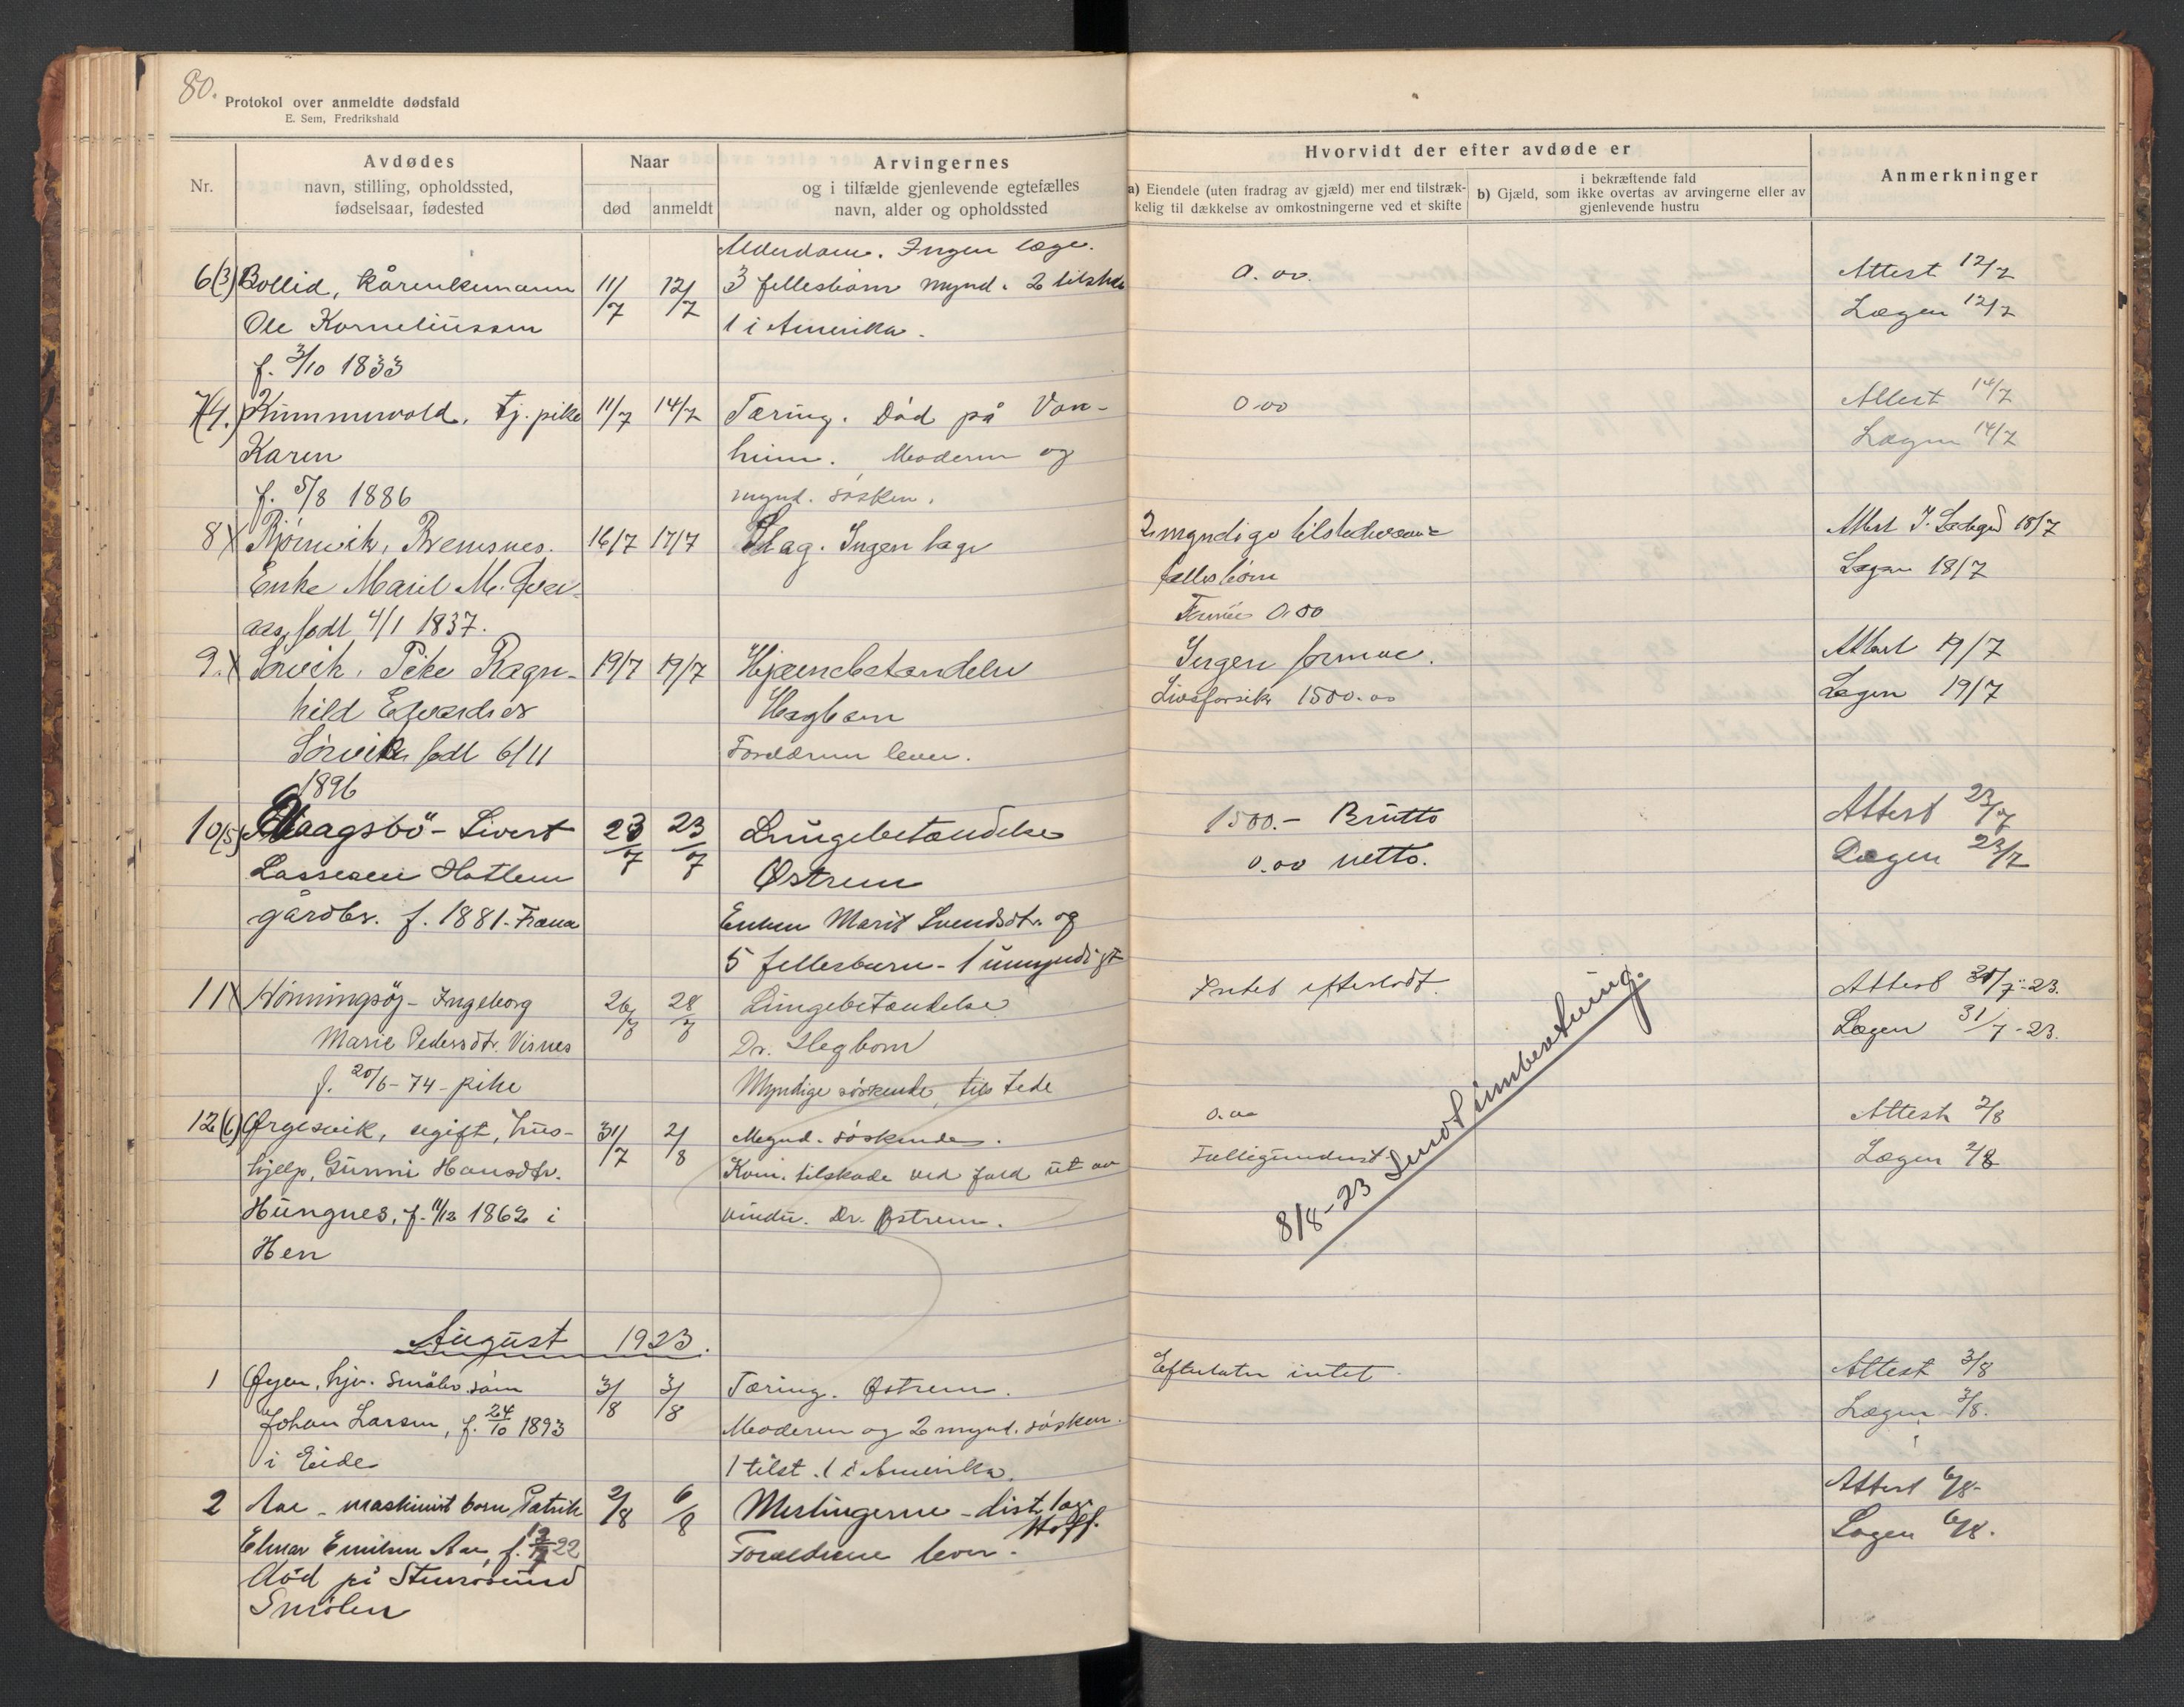 80.
Protokol over anmeldte dødsfald
E. Sem, Fredrikshald
Nr.
Avdødes
navn, stilling, opholdssted,
fødselsaar, fødested
Naar
død
anmeldt
Arvingernes
og i tilfælde gjenlevende egtefælles
navn, alder og opholdssted
Hvorvidt der efter avdøde er
a) Eiendele (uten fradrag av gjæld) mer end tilstræk-
kelig til dækkelse av omkostningerne ved et skifte
i bekræftende fald
b) Gjæld, som ikke overtas av arvingerne eller av
gjenlevende hustru
Anmerkninger
Alderdom. Ingen læge.
6(3) Bollid, kårenkemann 11/7 12/7 3 fellesbørn mynd. 2 tilstede 0.00. Attest 12/7
Ole Korneliussen 1 i Amerika. Lægen 12/7
f. 3/10 1833
7(4.) tj. pike 11/7 14/7 Tæring. Død på Von- 0.00 Attest 14/7
Karen heim. Moderen og Lægen 14/7
f. 5/8 1886 mynd. søsken.
8 X Bjørnvik, Bremsnes. 16/7 17/7 Slag. Ingen læge 2 myndige tilstedeværende Attest 18/7
Enke Marit M. fællesbørn Lægen 18/7
født 4/1 1837. 0.00
9. X Sørvik, Pike Ragn- 19/7 19/7 Hjernebetændelse Ingen formue. Attest 19/7
hild Edvardsdr Hegbom Livsforsikr 1500.00 Lægen 19/7
Sørvik, født 6/11 Forældrene lever.
1896
10(5) Vaagsbö - Sivert 23/7 23/7 Lungebetændelse 1500.- Brutto Attest 23/7
Lassesen Hatlem Østrem 0.00 netto. Lægen 23/7
gårdbr. f. 1881. Fræna Enken Marit Svendsdtr. og
5 fellesbarn - 1 umyndigt
11 X Hönningsöy - Ingeborg 26/7 28/7 Lungebetændelse Intet efterladt. Attest 31/7-23.
Marie Pedersdtr. Visnes Dr. Hegbom Lægen 31/7-23.
f. 20/6-74 - pike Myndige söskende, tilstede
12(6) Ørgesvik, ugift, hus- 31/7 2/8 Mynd. søskende. 0.00 Attest 2/8
hjelp, Gunni Hansdtr. Kom. tilskade ved fald ut av Lægen 2/8
Hungnes, f. 11/12 1862 i vindu. Dr. Østrem.
Hen
8/8-23 Sendt innberetning.
August 1923.
1 Øyen, hjv. småbr. søn 3/8 3/8 Tæring. Østrem. Efterlater intet. Attest 3/8
Johan Larsen, f. 24/10 1893 Moderen og 2 mynd. søsken. Lægen 3/8.
i Eide 1 tilst. 1 i Amerika.
2 Aae - maskinist barn Patrik 2/8 6/8 Meslingerne - dist.læge Attest 6/8-
Elmar Emilsen Aae, f. 22 Hoff. Lægen 6/8.
Död på Forældrene lever.
Smölen